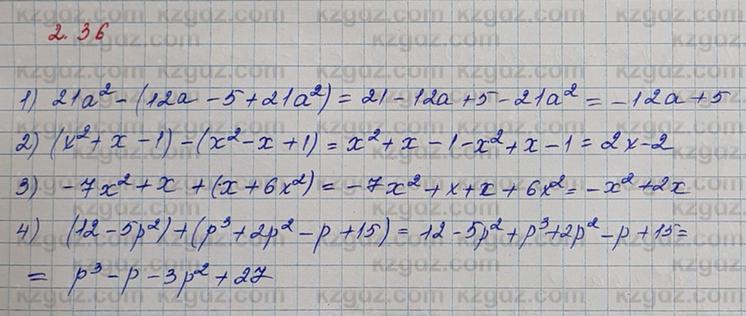 2.36
1) 21a² - (12a - 5 + 21a²) = 21 - 12a + 5 - 21a² = -12a + 5
2) (x² + x - 1) - (x² - x + 1) = x² + x - 1 - x² + x - 1 = 2x - 2
3) -7x² + x + (x + 6x²) = -7x² + x + x + 6x² = -x² + 2x
4) (12 - 5p²) + (p³ + 2p² - p + 15) = 12 - 5p² + p³ + 2p² - p + 15 =
= p³ - p - 3p² + 27